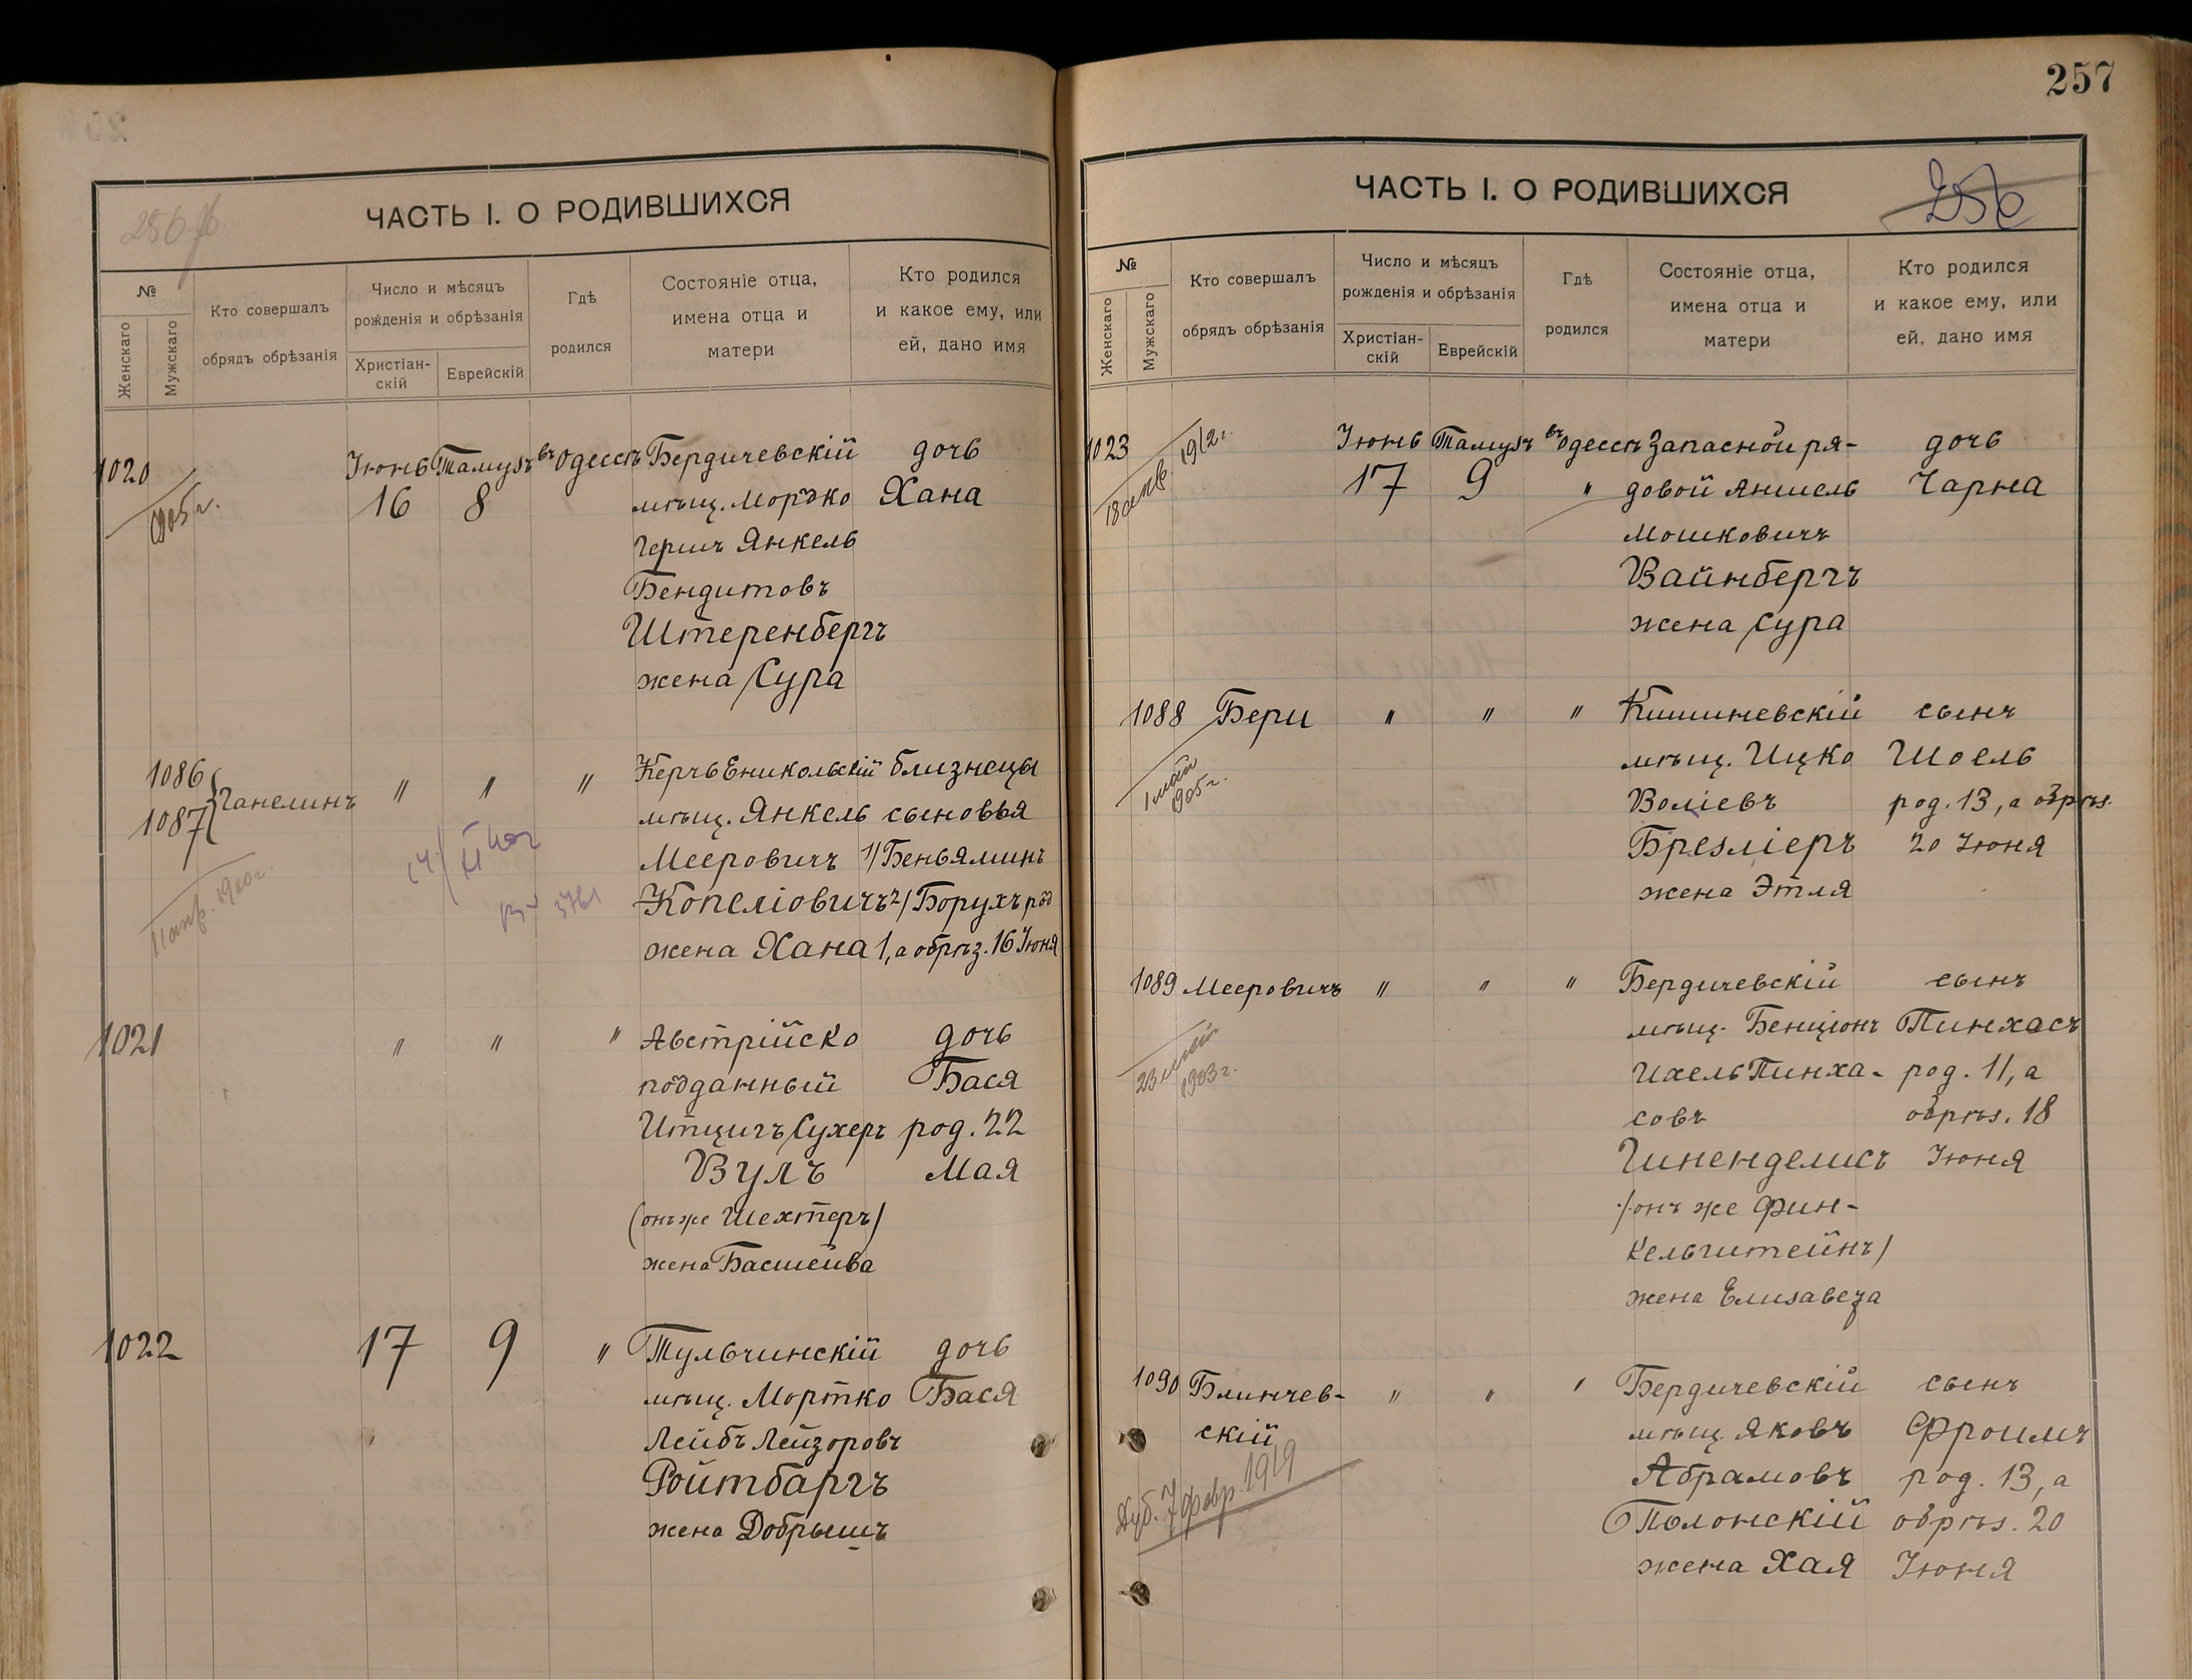 257
ЧАСТЬ I. О РОДИВШИХСЯ
№
Женскаго
Мужскаго
Кто совершалъ
обрядъ обрѣзанія
Число и мѣсяцъ
рожденія и обрѣзанія
Христіан-
скій
Еврейскій
Гдѣ
родился
Состояніе отца,
имена отца и
матери
Кто родился
и какое ему, или
ей, дано имя
1020
1905 г.
Іюнь
16
Тамузъ
8
въ Одессѣ
Бердичевскій
мѣщ. Моръко
Гершъ Янкель
Бендитовъ
Штеренбергъ
жена Сура
дочь
Хана
1086
1087
11 апр. 1900 г.
Ганелинъ
"
"
"
КерчьЕникольскій
мѣщ. Янкель
Мееровичъ
Копеліовичъ
жена Хана
близнецы
сыновья
1/ Беньяминъ
2/ Борухъ род
1, а обрѣз. 16 Іюня
1021
"
"
"
Австрійско
подданный
Итцигъ Сухеръ
Вулъ
(онъ же Шехтеръ)
жена Басшейва
дочь
Бася
род. 22
Мая
1022
17
9
"
Тульчинскій
мѣщ. Мортко
Лейбъ Лейзоровъ
Ройтбаргъ
жена Добрышъ
дочь
Бася
ЧАСТЬ I. О РОДИВШИХСЯ
256
№
Женскаго
Мужскаго
Кто совершалъ
обрядъ обрѣзанія
Число и мѣсяцъ
рожденія и обрѣзанія
Христіан-
скій
Еврейскій
Гдѣ
родился
Состояніе отца,
имена отца и
матери
Кто родился
и какое ему, или
ей, дано имя
1023
1912 г.
Іюнь
17
Тамузъ
9
въ Одессѣ
"
Запасной ря-
довой Аншель
Мошковичъ
Вайнбергъ
жена Сура
дочь
Чарна
1088
1 мая
1905 г.
Бери
"
"
"
Кишиневскій
мѣщ. Ицко
Воліевъ
Бреэліеръ
жена Этля
сынъ
Шоель
род. 13, а обрѣз.
20 Іюня
1089
1903 г.
Мееровичъ
"
"
"
Бердичевскій
мѣщ. Бенціонъ
Ихель Пинха-
совъ
Гинендлисъ
/онъ же Фин-
кельштейнъ/
жена Елизавета
сынъ
Пинхасъ
род. 11, а
обрѣз. 18
Іюня
1090
7 февр. 1919
Блинчев-
скій
"
"
"
Бердичевскій
мѣщ. Яковъ
Абрамовъ
Полонскій
жена Хая
сынъ
Фроимъ
род. 13, а
обрѣз. 20
Іюня